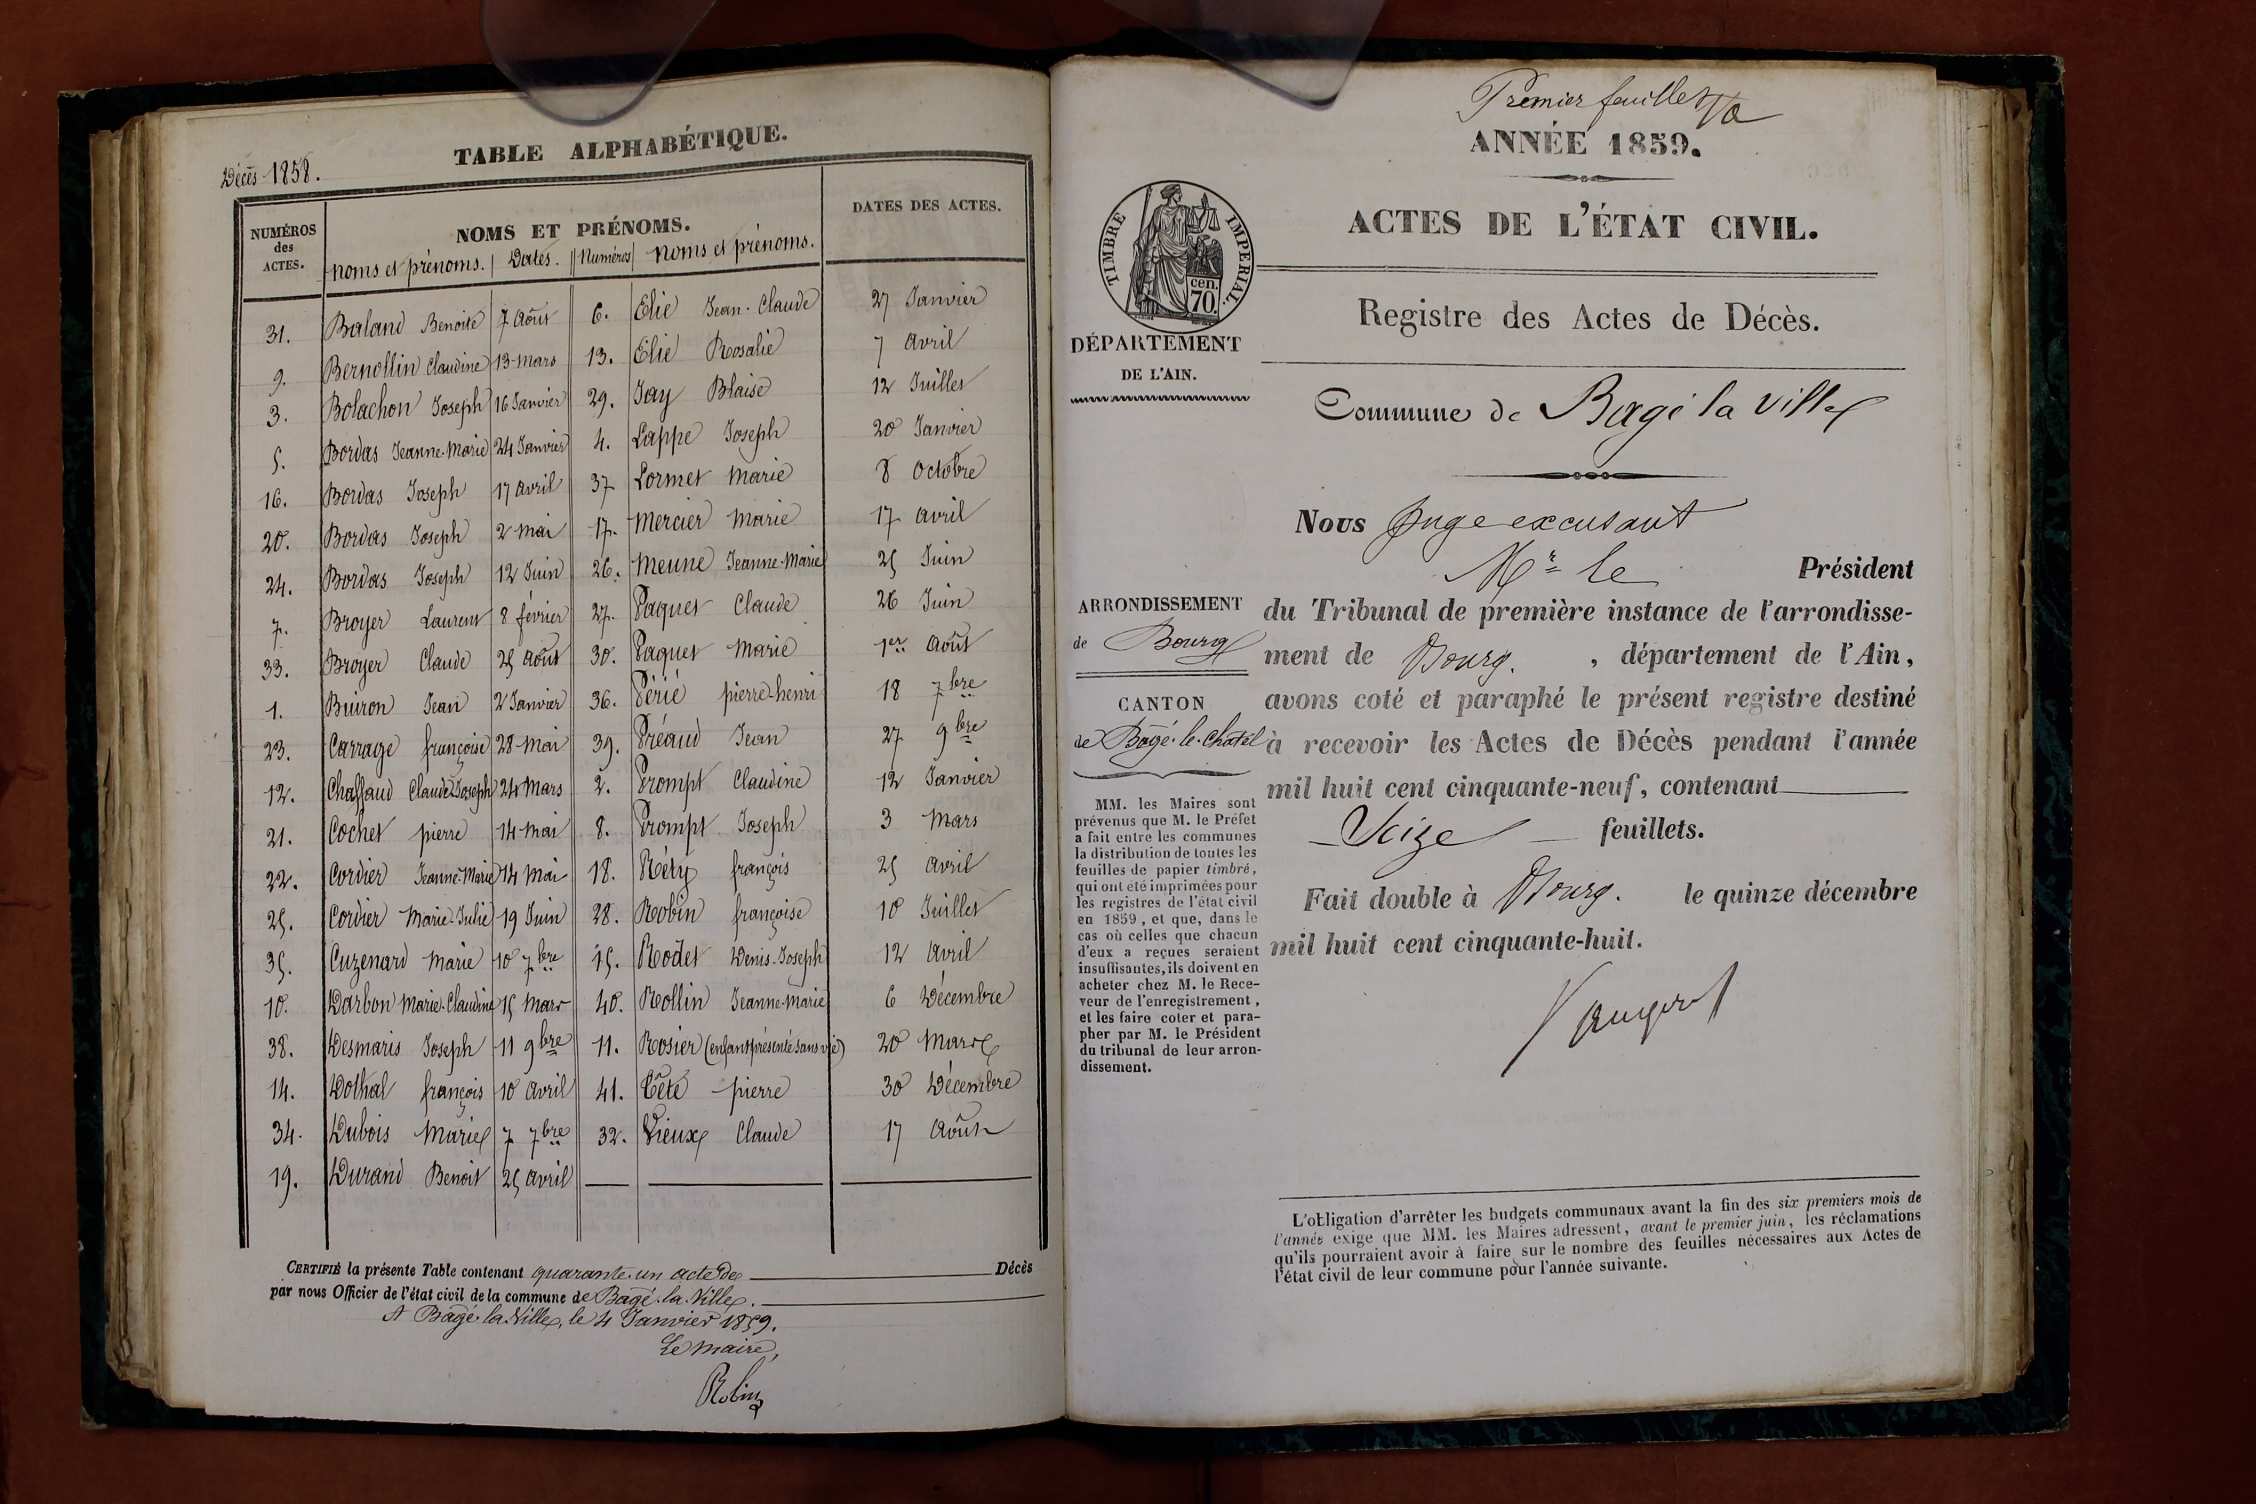 Décès 1858.
TABLE ALPHABÉTIQUE.
NUMÉROS des ACTES.
NOMS ET PRÉNOMS.
DATES DES ACTES.
noms et prénoms. Dates. Numéros noms et prénoms.
31. Baland Benoite 7 Août 6. Elie Jean-Claude 27 Janvier
9. Bernollin Claudine 13 mars 13. Elie Rosalie 7 Avril
3. Bolachon Joseph 16 Janvier 29. Jay Blaise 12 Juillet
5. Bordas Jeanne-Marie 24 Janvier 4. Lappe Joseph 20 Janvier
16. Bordas Joseph 17 avril 37 Lormet Marie 8 octobre
20. Bordas Joseph 2 mai 17. Mercier Marie 17 avril
24. Bordas Joseph 12 Juin 26. Meune Jeanne-Marie 25 Juin
7. Broyer Laurent 8 février 27. Paquet Claude 26 Juin
33. Broyer Claude 25 Août 30. Paquet Marie 1er Août
1. Buiron Jean 2 Janvier 36. Périé pierre-henri 18 7bre
23. Carrage françoise 28 mai 39. Préaud Jean 27 9bre
12. Chaffaud Claude Joseph 24 Mars 2. Prompt Claudine 12 Janvier
21. Cochet pierre 14 mai 8. Prompt Joseph 3 mars
22. Cordier Jeanne-Marie 14 mai 18. Réty françois 25 avril
25. Cordier Marie-Julie 19 Juin 28. Robin françoise 10 Juillet
35. Cuzenard Marie 10 7bre 15. Rodet Denis-Joseph 12 avril
10. Darbon Marie-Claudine 15 Mars 40. Rollin Jeanne-Marie 6 Décembre
38. Desmaris Joseph 11 9bre 11. Rosier (enfant présenté sans vie) 20 Mars
14. Dothal françois 10 avril 41. Tête pierre 30 Décembre
34. Dubois Marie 7 7bre 32. Vieux Claude 17 Août
19. Durand Benoit 25 avril
CERTIFIÉ la présente Table contenant quarante-un actes de Décès
par nous Officier de l'état civil de la commune de Bagé-la-Ville.
A Bagé-la-Ville, le 4 Janvier 1859.
Le maire,
Robin
Premier feuillet
ANNÉE 1859.
ACTES DE L'ÉTAT CIVIL.
TIMBRE IMPERIAL.
cen. 70.
DÉPARTEMENT
DE L'AIN.
Registre des Actes de Décès.
Commune de Bagé la Ville
Nous Juge excusant
Mr le Président
du Tribunal de première instance de l'arrondisse-
ment de Bourg. , département de l'Ain,
avons coté et paraphé le présent registre destiné
à recevoir les Actes de Décès pendant l'année
mil huit cent cinquante-neuf, contenant
Seize feuillets.
Fait double à Bourg. le quinze décembre
mil huit cent cinquante-huit.
ARRONDISSEMENT
de Bourg
CANTON
de Bagé-le-Chatel
MM. les Maires sont
prévenus que M. le Préfet
a fait entre les communes
la distribution de toutes les
feuilles de papier timbré,
qui ont été imprimées pour
les registres de l'état civil
en 1859, et que, dans le
cas où celles que chacun
d'eux a reçues seraient
insuffisantes, ils doivent en
acheter chez M. le Rece-
veur de l'enregistrement,
et les faire coter et para-
pher par M. le Président
du tribunal de leur arron-
dissement.
L'obligation d'arrêter les budgets communaux avant la fin des six premiers mois de
l'année exige que MM. les Maires adressent, avant le premier juin, les réclamations
qu'ils pourraient avoir à faire sur le nombre des feuilles nécessaires aux Actes de
l'état civil de leur commune pour l'année suivante.